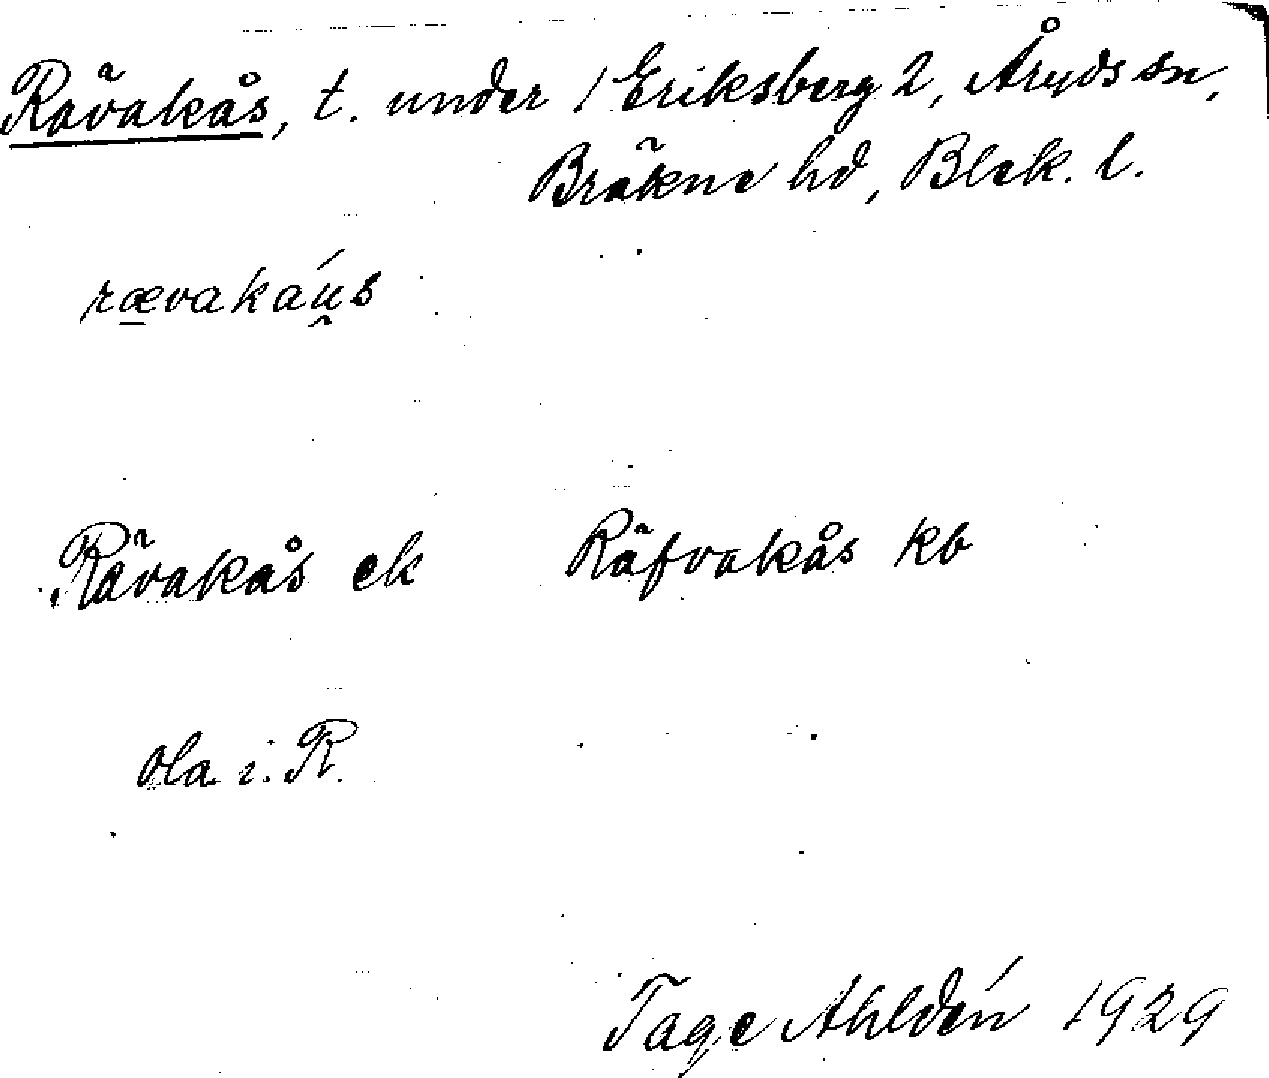 Rävakås, t. under 1 Eriksberg 2, Åryds sn,
Bräkne hd, Blek. l.
rævakáu̯s
Rävakås ek Räfvakås kb
Ola i R.
Tage Ahldén 1929